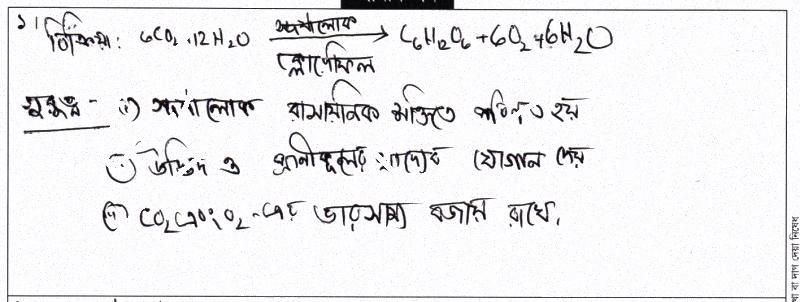 ১।
বিক্রিয়া: 6CO2 + 12H2O সূর্যালোক → C6H12O6 + 6O2 + 6H2O
ক্লোরোফিল
গুরুত্ব - i) সূর্যালোক রাসায়নিক শক্তিতে পরিণত হয়
ii) উদ্ভিদ ও প্রাণীকূলের খাদ্যের যোগান দেয়
iii) CO2 এবং O2-এর ভারসাম্য বজায় রাখে।
বা দাগ দেয়া নিষেধ